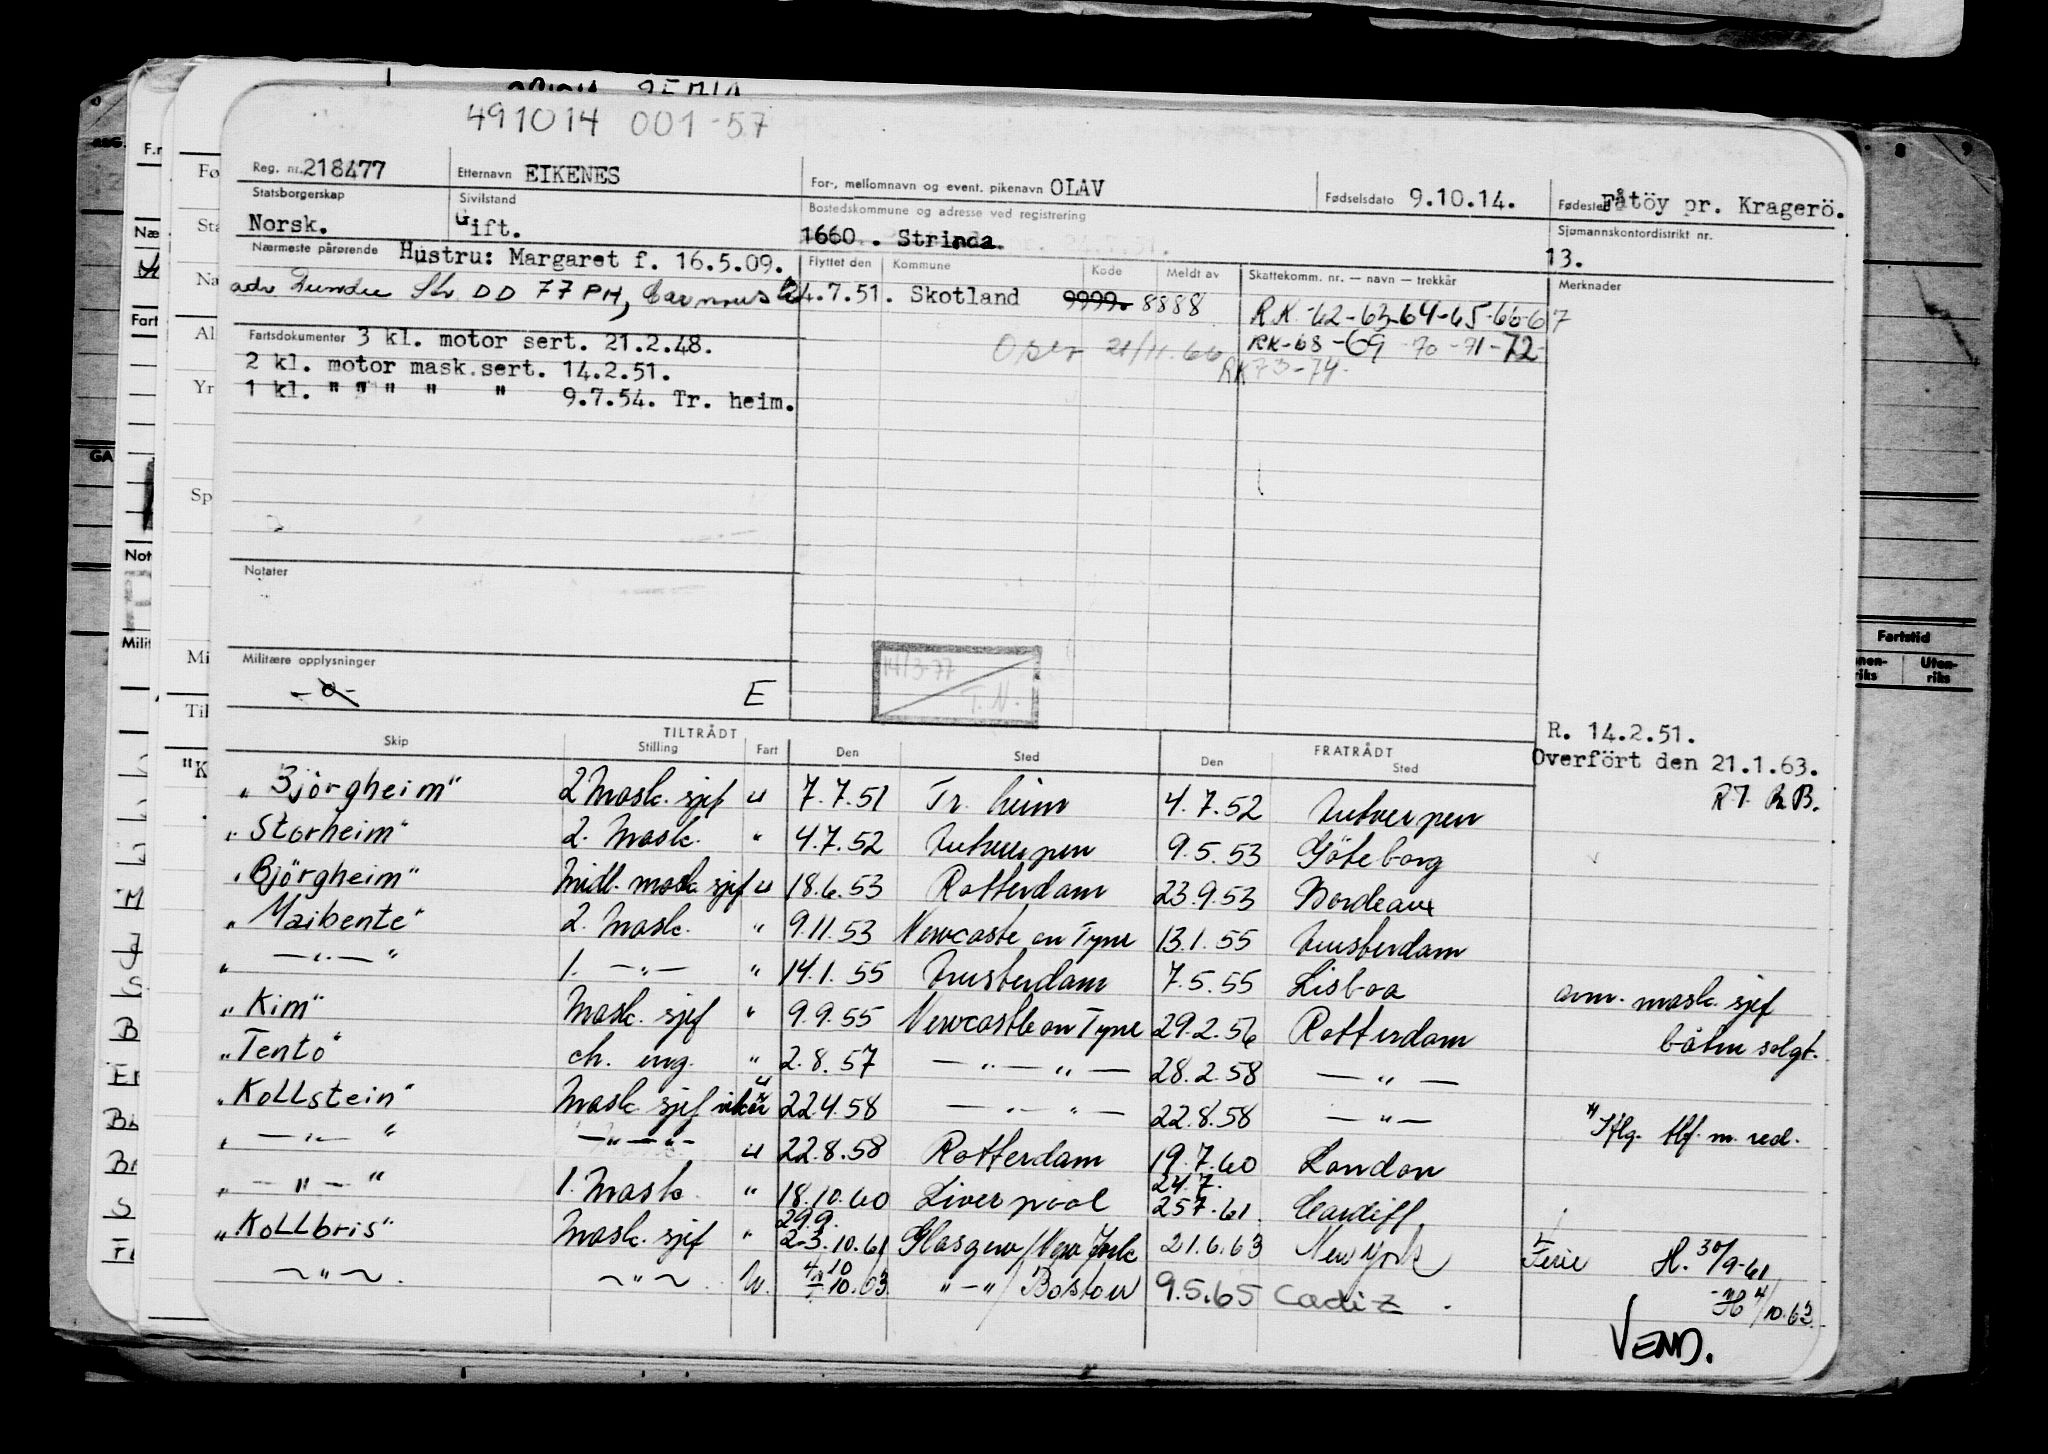 491014 001-57
Reg. nr. 218477 Etternavn EIKENES For-, mellomnavn og event. pikenavn OLAV Fødselsdato 9.10.14. Fødested Fåtöy pr. Kragerö.
Statsborgerskap Norsk. Sivilstand Gift. Bostedskommune og adresse ved registrering 1660. Strinda. Sjømannskontordistrikt nr. 13.
Nærmeste pårørende Hustru: Margaret f. 16.5.09. Flyttet den Kommune Kode Meldt av Skattekomm. nr. — navn — trekkår Merknader
adr Dundee Str DD 77 PH, 24.7.51. Skotland 9999. 8888 RK -62-63-64-65-66-67
Fartsdokumenter 3 kl. motor sert. 21.2.48. 21/11.66 RK-68-69-70-71-72-
2 kl. motor mask.sert. 14.2.51. RK73-74-
1 kl. " " " " " 9.7.54. Tr. heim.
Notater
Militære opplysninger
-0- E
14/3-77
T.N.
R. 14.2.51.
Overfört den 21.1.63.
R.T. B.
TILTRÅDT FRATRÅDT
Skip Stilling Fart Den Sted Den Sted
"Björgheim" 2 Mask. sjef u 7.7.51 Tr. heim 4.7.52 Antwerpen
"Storheim" 2. Mask. " 4.7.52 Antwerpen 9.5.53 Göteborg
"Björgheim" Midl. mask sjef u 18.6.53 Rotterdam 23.9.53 Bordeaux
"Maibente" 2. Mask. " 9.11.53 Newcastle on Tyne 13.1.55 Amsterdam
" — " — " 1. — " — " 14.1.55 Amsterdam 7.5.55 Lisboa
"Kim" Mask. sjef " 9.9.55 Newcastle on Tyne 29.2.56 Rotterdam avm. mask. sjef
båten solgt.
"Tento" ch. eng. " 2.8.57 — " — " — 28.2.58 — " —
"Kollstein" Mask. sjef vikar u 22.4.58 — " — " — 22.8.58 — " — Iflg. tlf. m. red.
" — " — " — " — " — u 22.8.58 Rotterdam 19.7.60 London
" — " — " 1. Mask. " 18.10.60 Liverpool 24.7. 25.7.61. Cardiff
"Kollbris" Mask. sjef " 29.9. 2-3.10.61 Glasgow/New York 21.6.63 New York Ferie H. 30/9-61
~ " ~ . ~ " ~ . U. 4/10 10.63 " — " / Boston 9.5.65 Cadiz . - " - H 4/10.63
VEND.
Fartstid
Innen-riks Uten-riks